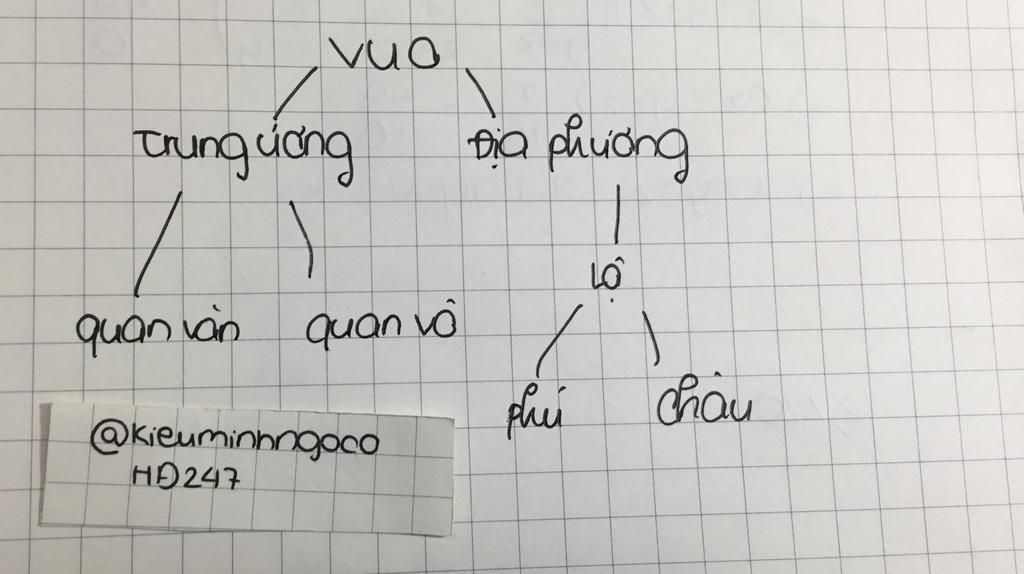 vua
Trung ương Địa phương
lộ
quan văn quan võ
phủ châu
@kieuminhngoco
HĐ247